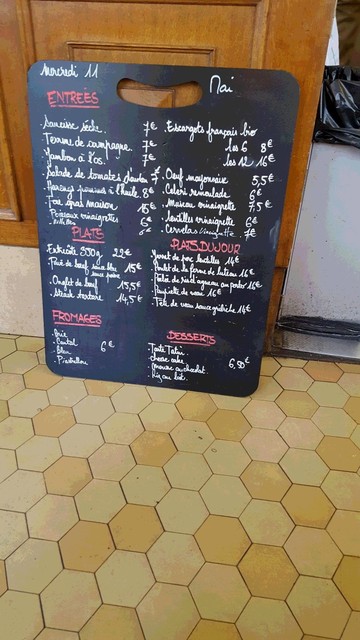 Mercredi 11 Mai
ENTREES
Saucisse sèche 7€
Terrine de campagne 7€
Jambon à l'os 7€
Salade de tomates
Hareng pommes à l'huile 8€
Foie gras maison 15€
Poireaux vinaigrette 6€
Escargots français bio
les 6 8€
les 12 16€
Oeuf mayonnaise 5,5€
Céleri remoulade 6€
Museau vinaigrette 7,5€
Lentilles vinaigrette 6€
Cervelas vinaigrette 7€
PLATS
Entrecôte 330g 22€
Pavé de boeuf sauce bleu 15€
sauce poivre
Onglet de boeuf 15,5€
Steak tartare 14,5€
PLATS DU JOUR
Jarret de porc lentilles 14€
Poulet de la ferme de 16€
16€
de veau 16€
Tête de veau sauce gribiche 14€
FROMAGES
Brie
Cantal
Bleu
6€
DESSERTS
Tarte Tatin
cheese cake
mousse au chocolat
Riz au lait
6,50€